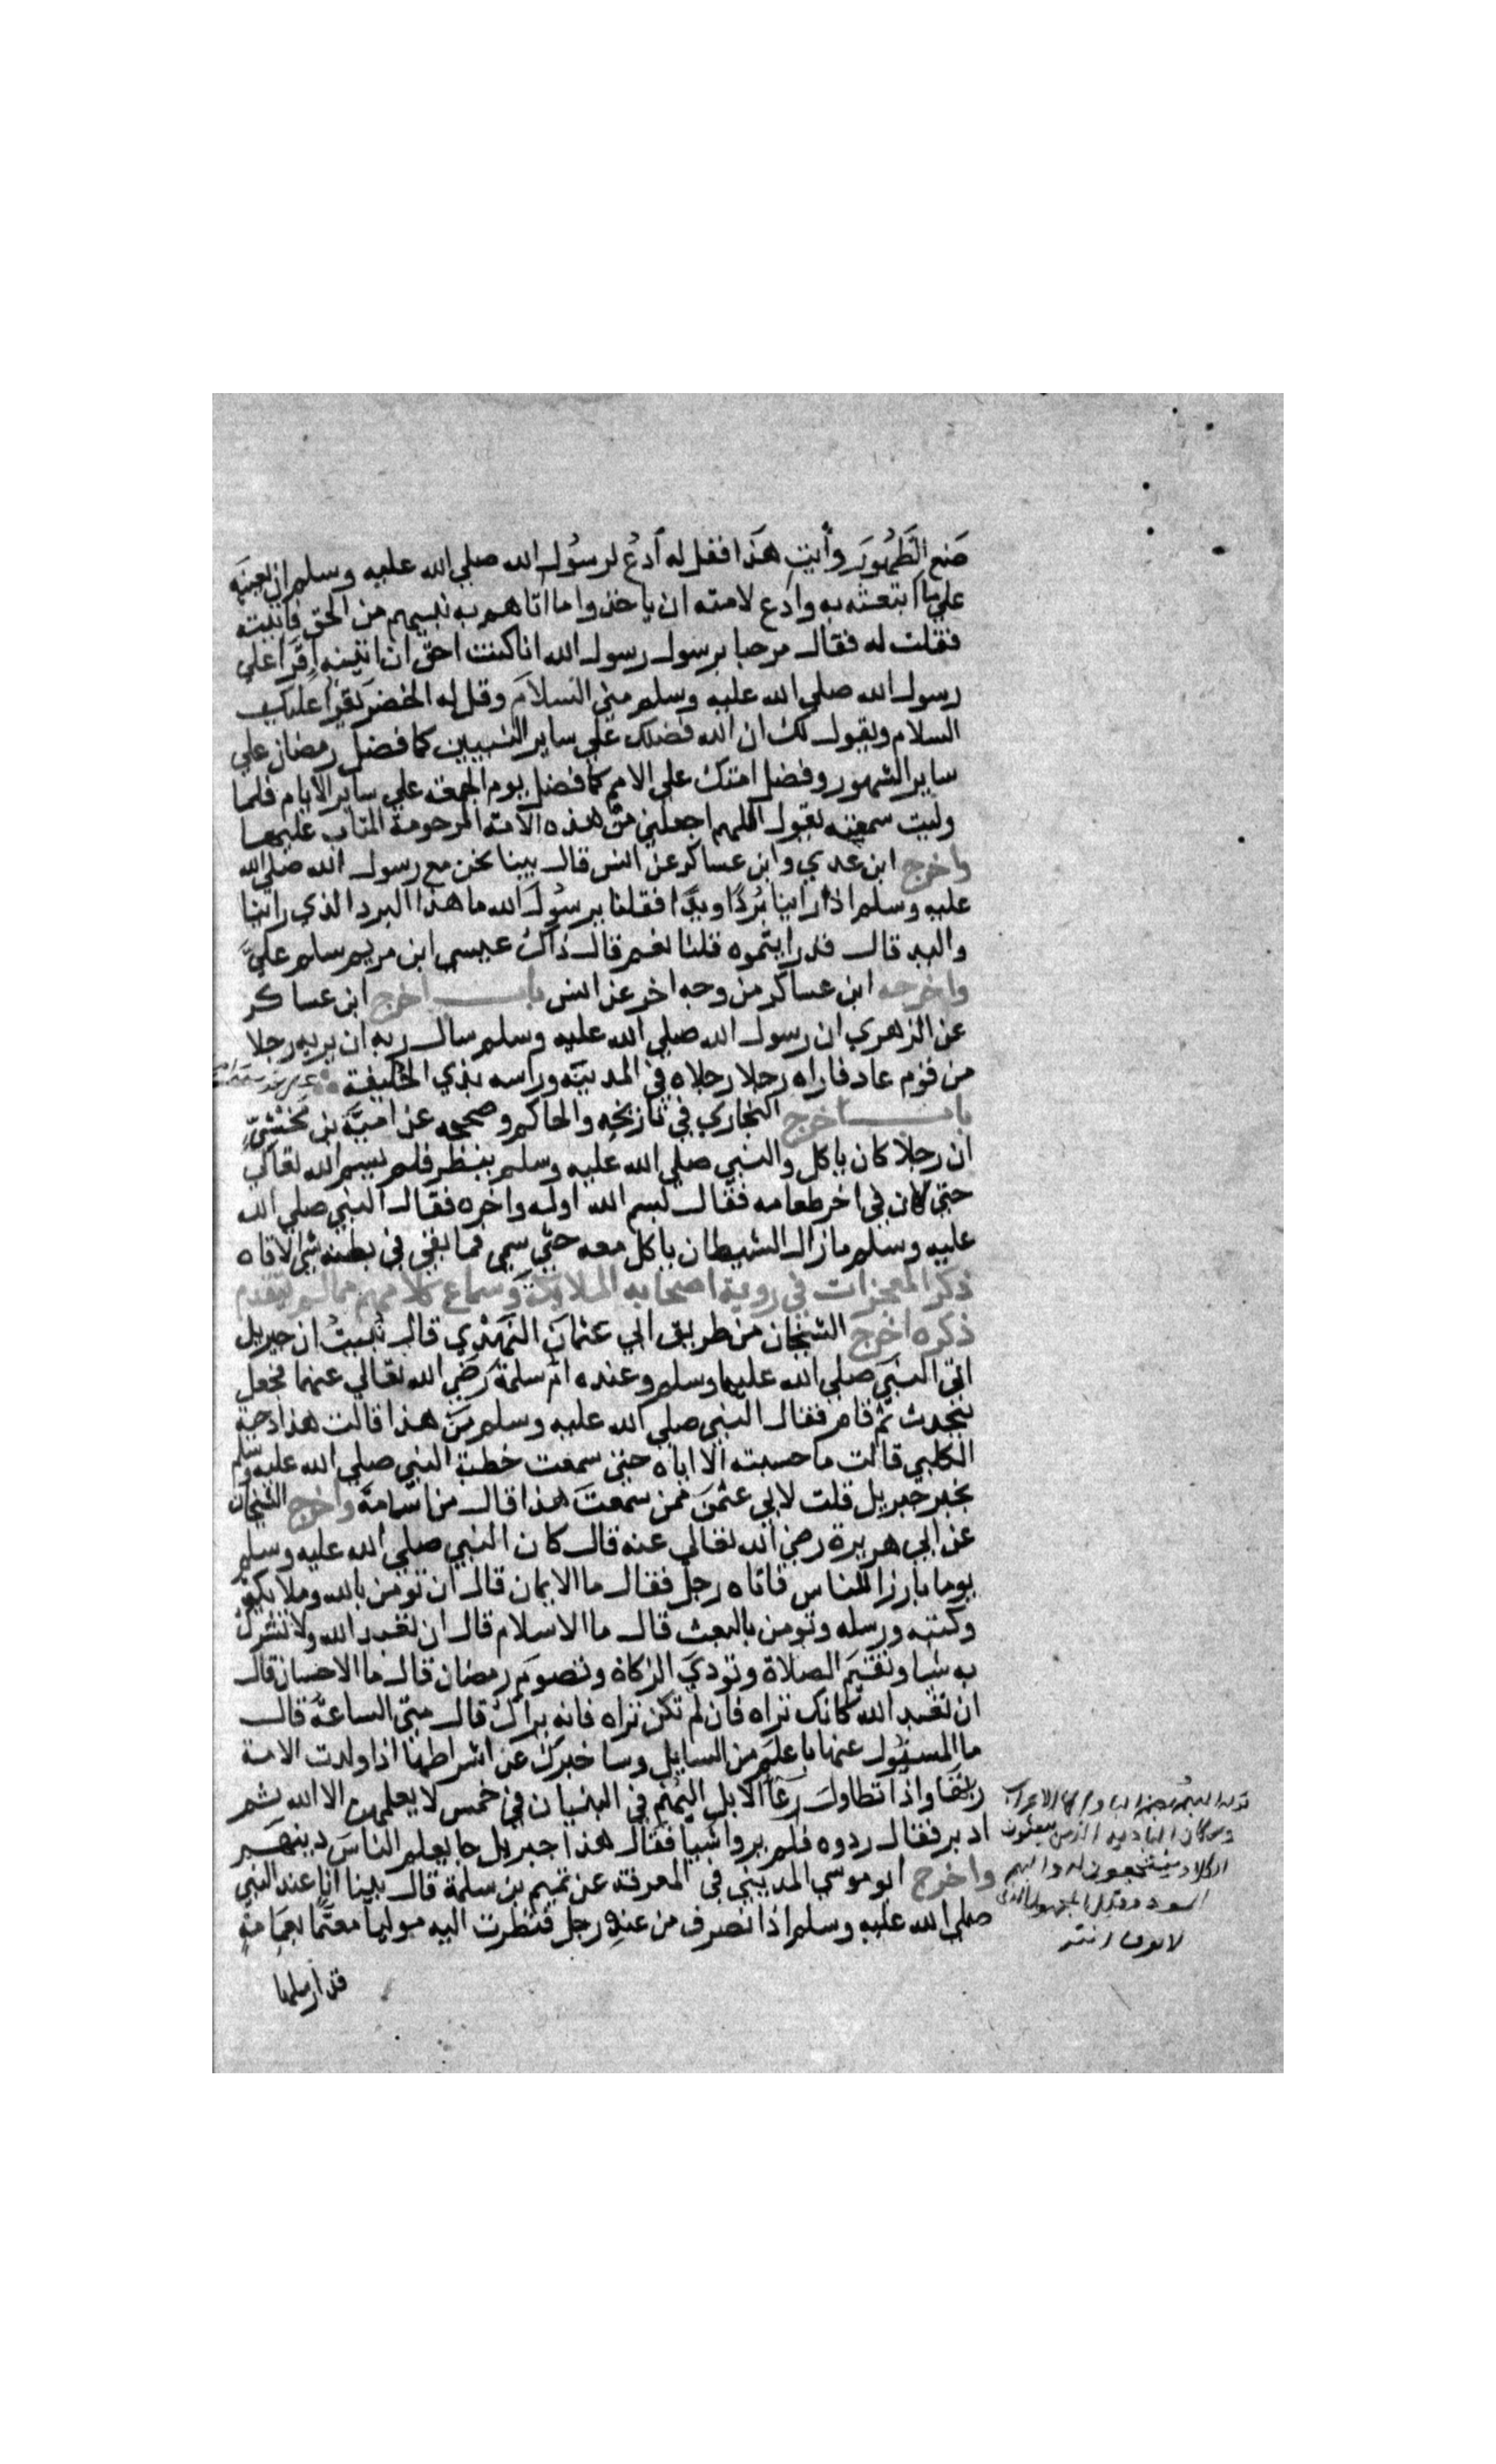 ضع الطَّهُور وأيتِ هَذا فقل له اَدعُ لرسُول الله صلي الله عليه وسلم ان يعينه
علي ما ابتعثه به وادع لامته ان ياخذوا ما اتاهم به نبيهم من الحق فاتيته
فقلت له فقال مرحبا برسول رسول الله انا كنت احق ان اتيه اقرا علي
رسول الله صلي الله عليه وسلم مني السلام وقل له الخضر يقرا عليك
السلام ويقول لك ان الله فضلك علي ساير النبيين كما فضل رمضان علي
ساير الشهور وفضل امتك علي الامم كما فضل يوم الجمعة علي ساير الايام فلما
وليت سمعته يقول اللهم اجعلني من هذه الامة المرحومة المتاب عليها
واخرج ابن عدي وابن عساكر عن انس قال بينا نحن مع رسول الله صلي الله
عليه وسلم اذ راينا بُردًا ويدًا فقلنا يرسُول الله ما هذا البرد الذي راينا
واليد قال قد رايتموه قلنا نعم قال ذاك عيسي ابن مريم سلم عليَّ
واخرجه ابن عساكر من وجه اخر عن انس باب اخرج ابن عساكر
عن الزهري ان رسول الله صلي الله عليه وسلم سال ربه ان يريه رجلا
من قوم عاد فاراه رجلا رجلاه في المدينة وراسه بذي الحليفة
باب اخرج البخاري في تاريخه والحاكم وصححه عن اميَّة بن مَخْشيّ
ان رجلا كان ياكل والنبي صلي الله عليه وسلم ينظر فلم يسم الله تعالي
حتي كان في اخر طعامه فقال بسم الله اوله واخره فقال النبي صلي الله
عليه وسلم ما زال الشيطان ياكل معه حتي سمي فما بقي في بطنه شي الا قاه
ذكر المعجزات في روية اصحابه الملايكة وسماع كلامهم مما لم يتقدم
ذكره اخرج الشيخان من طريق ابي عثمان النَّهْدِي قال نُبِيتُ ان جبريل
اتي النبيَ صلي الله عليهما وسلم وعنده ام سلمة رَضِي الله تعالي عنها فجعل
يتحدث ثم قام فقال النبي صلي الله عليه وسلم مَن هذا قالت هذا دحية
الكلبي قالت ما حسبته الا اياه حتي سمعت خطبة النبي صلي الله عليه وسلم
بخبر جبريل قلت لابي عثمن ممن سمعتَ هذا قال من اسامة واخرج الشيخان
عن ابي هريرة رضي الله تعالي عنه قال كان النبي صلي الله عليه وسلم
يوما بارزا للناس فاتاه رجل فقال ما الايمان قال ان تومن بالله وملايكته
وكتبه ورسله وتومن بالبعث قال ما الاسلام قال ان تعبد الله ولا تشرك
به شيا وتقيم الصلاة وتودي الزكاة وتصوم رمضان قال ما الاحسان قال
ان تعبد الله كانك تراه فان لم تكن تراه فانه يراك قال متي الساعة قال
ما المسئول عنها باعلم من السايل وساخبرك عن اشراطها اذا ولدت الامة
ربتها واذا تطاول رعا الابل البُهْم في البنيان في خمس لا يعلمهن الا الله ثم
ادبر فقال ردوه فلم يروا شيا فقال هذا جبريل جا يعلم الناس دينهم
واخرج ابو موسي المديني في المعرفة عن تميم بن سلمة قال بينا انا عند النبي
صلي الله عليه وسلم اذ انصرف من عنده رجل فنظرت اليه موليا معتمًا بعمامة
قد ارسلها